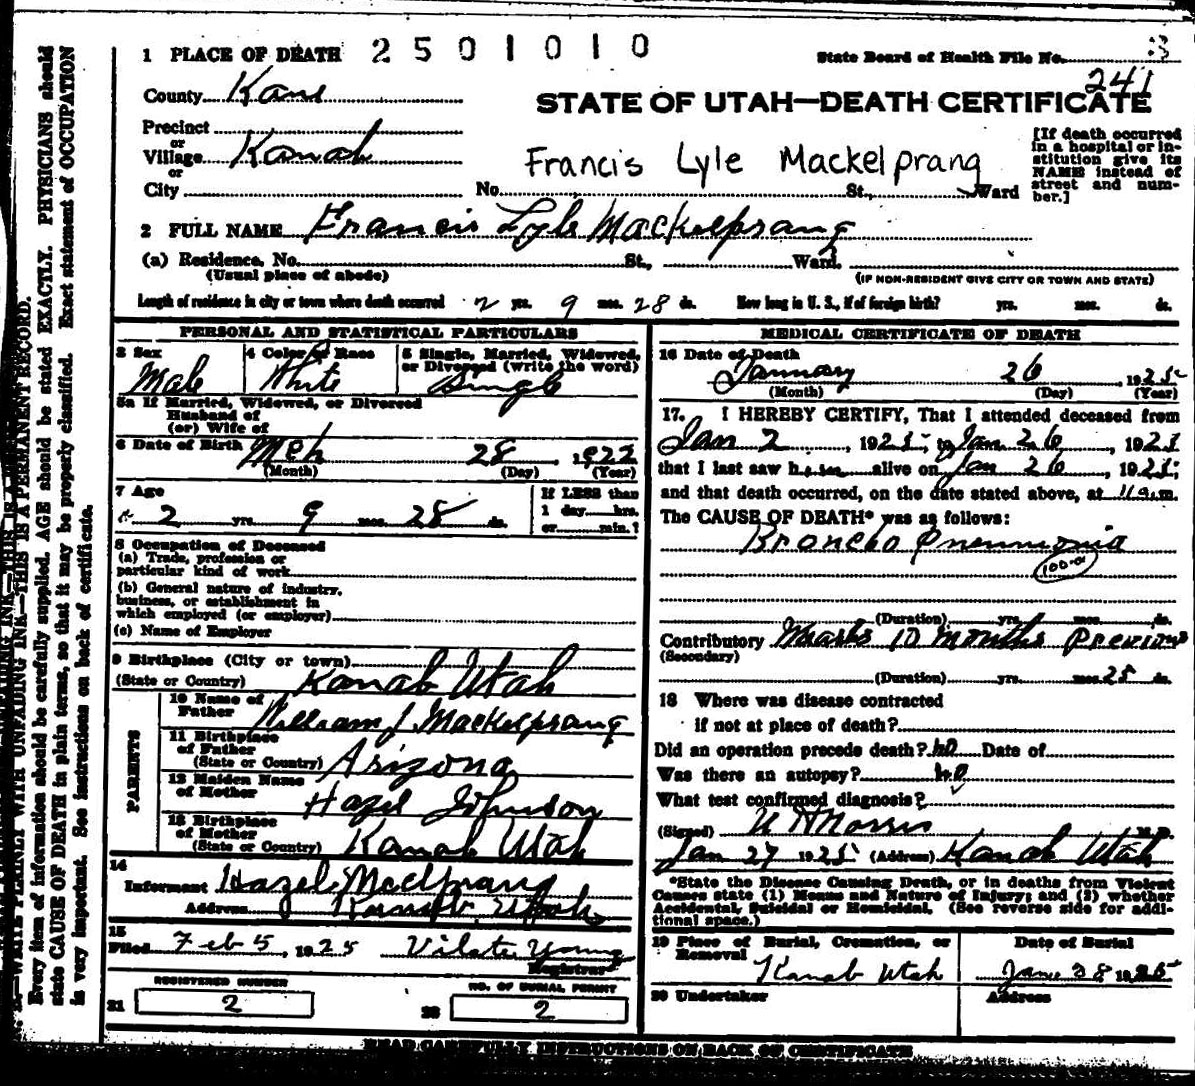 1 PLACE OF DEATH 2501010
State Board of Health File No. 3
241
County Kane
STATE OF UTAH—DEATH CERTIFICATE
Precinct
or
Village Kanab
or
City
No. St., Ward
Francis Lyle Mackelprang
[If death occurred
in a hospital or in-
stitution give its
NAME instead of
street and num-
ber.]
2 FULL NAME Francis Lyle Mackelprang
(a) Residence, No. St., Ward.
(Usual place of abode)
(IF NON-RESIDENT GIVE CITY OR TOWN AND STATE)
Length of residence in city or town where death occurred 2 yrs. 9 mos. 28 ds. How long in U. S., if of foreign birth? yrs. mos. ds.
PERSONAL AND STATISTICAL PARTICULARS
3 Sex
Male
4 Color or Race
White
5 Single, Married, Widowed,
or Divorced (write the word)
Single
5a If Married, Widowed, or Divorced
Husband of
(or) Wife of
6 Date of Birth Mch 28, 1922
(Month) (Day) (Year)
7 Age
2 yrs. 9 mos. 28 ds.
If LESS than
1 day hrs.
or min.?
8 Occupation of Deceased
(a) Trade, profession or
particular kind of work
(b) General nature of industry,
business, or establishment in
which employed (or employer)
(c) Name of Employer
9 Birthplace (City or town)
(State or Country) Kanab Utah
PARENTS
10 Name of
Father William J. Mackelprang
11 Birthplace
of Father
(State or Country) Arizona
12 Maiden Name
of Mother Hazel Johnson
13 Birthplace
of Mother
(State or Country) Kanab Utah
14
Informant Hazel Maclprang
Address Kanab, Utah
15
Filed Feb 5, 1925 Vilate Young
Registrar
REGISTERED NUMBER
21 2
NO. OF BURIAL PERMIT
22 2
MEDICAL CERTIFICATE OF DEATH
16 Date of Death
January 26, 1925
(Month) (Day) (Year)
17. I HEREBY CERTIFY, That I attended deceased from
Jan 2, 1925, to Jan 26, 1925
that I last saw him alive on Jan 26, 1925,
and that death occurred, on the date stated above, at 11 a.m.
The CAUSE OF DEATH* was as follows:
Broncho Pneumonia
100-a
(Duration) yrs. ds.
Contributory Measles 10 months Previous
(Secondary)
(Duration) yrs. mos. 25 ds.
18 Where was disease contracted
if not at place of death?
Did an operation precede death? no Date of
Was there an autopsy? no
What test confirmed diagnosis?
(Signed) Norris M.D.
Jan 27 1925 (Address) Kanab Utah
*State the Disease Causing Death, or in deaths from Violent
Causes state (1) Means and Nature of Injury; and (2) whether
Accidental, Suicidal or Homicidal. (See reverse side for addi-
tional space.)
19 Place of Burial, Cremation, or
Removal
Kanab Utah
Date of Burial
Jan 28 1925
20 Undertaker
Address
READ CAREFULLY INSTRUCTIONS ON BACK OF CERTIFICATE
WRITE PLAINLY WITH UNFADING INK—THIS IS A PERMANENT RECORD.
Every item of information should be carefully supplied. AGE should be stated EXACTLY. PHYSICIANS should
state CAUSE OF DEATH in plain terms, so that it may be properly classified. Exact statement of OCCUPATION
is very important. See instructions on back of certificate.